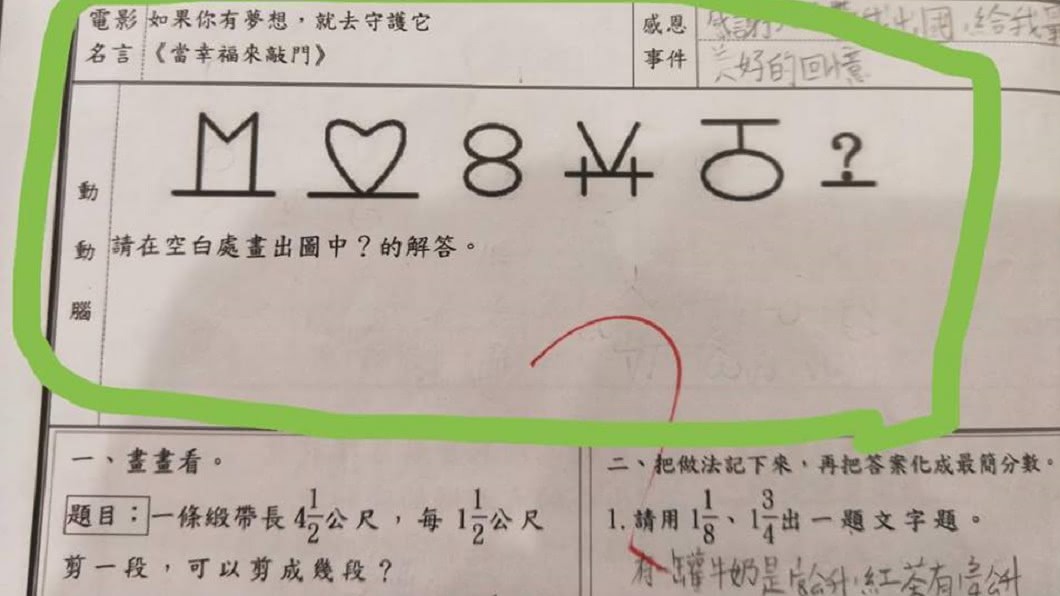 電影 如果你有夢想，就去守護它
名言 《當幸福來敲門》
感恩
事件
給我
美好的回憶
?
動動腦
請在空白處畫出圖中？的解答。
一、畫畫看。
題目：一條緞帶長4 1/2公尺，每 1 1/2公尺
剪一段，可以剪成幾段？
二、把做法記下來，再把答案化成最簡分數。
1. 請用1 1/8、1 3/4出一題文字題。
有一罐牛奶是 公升,紅茶有 公升